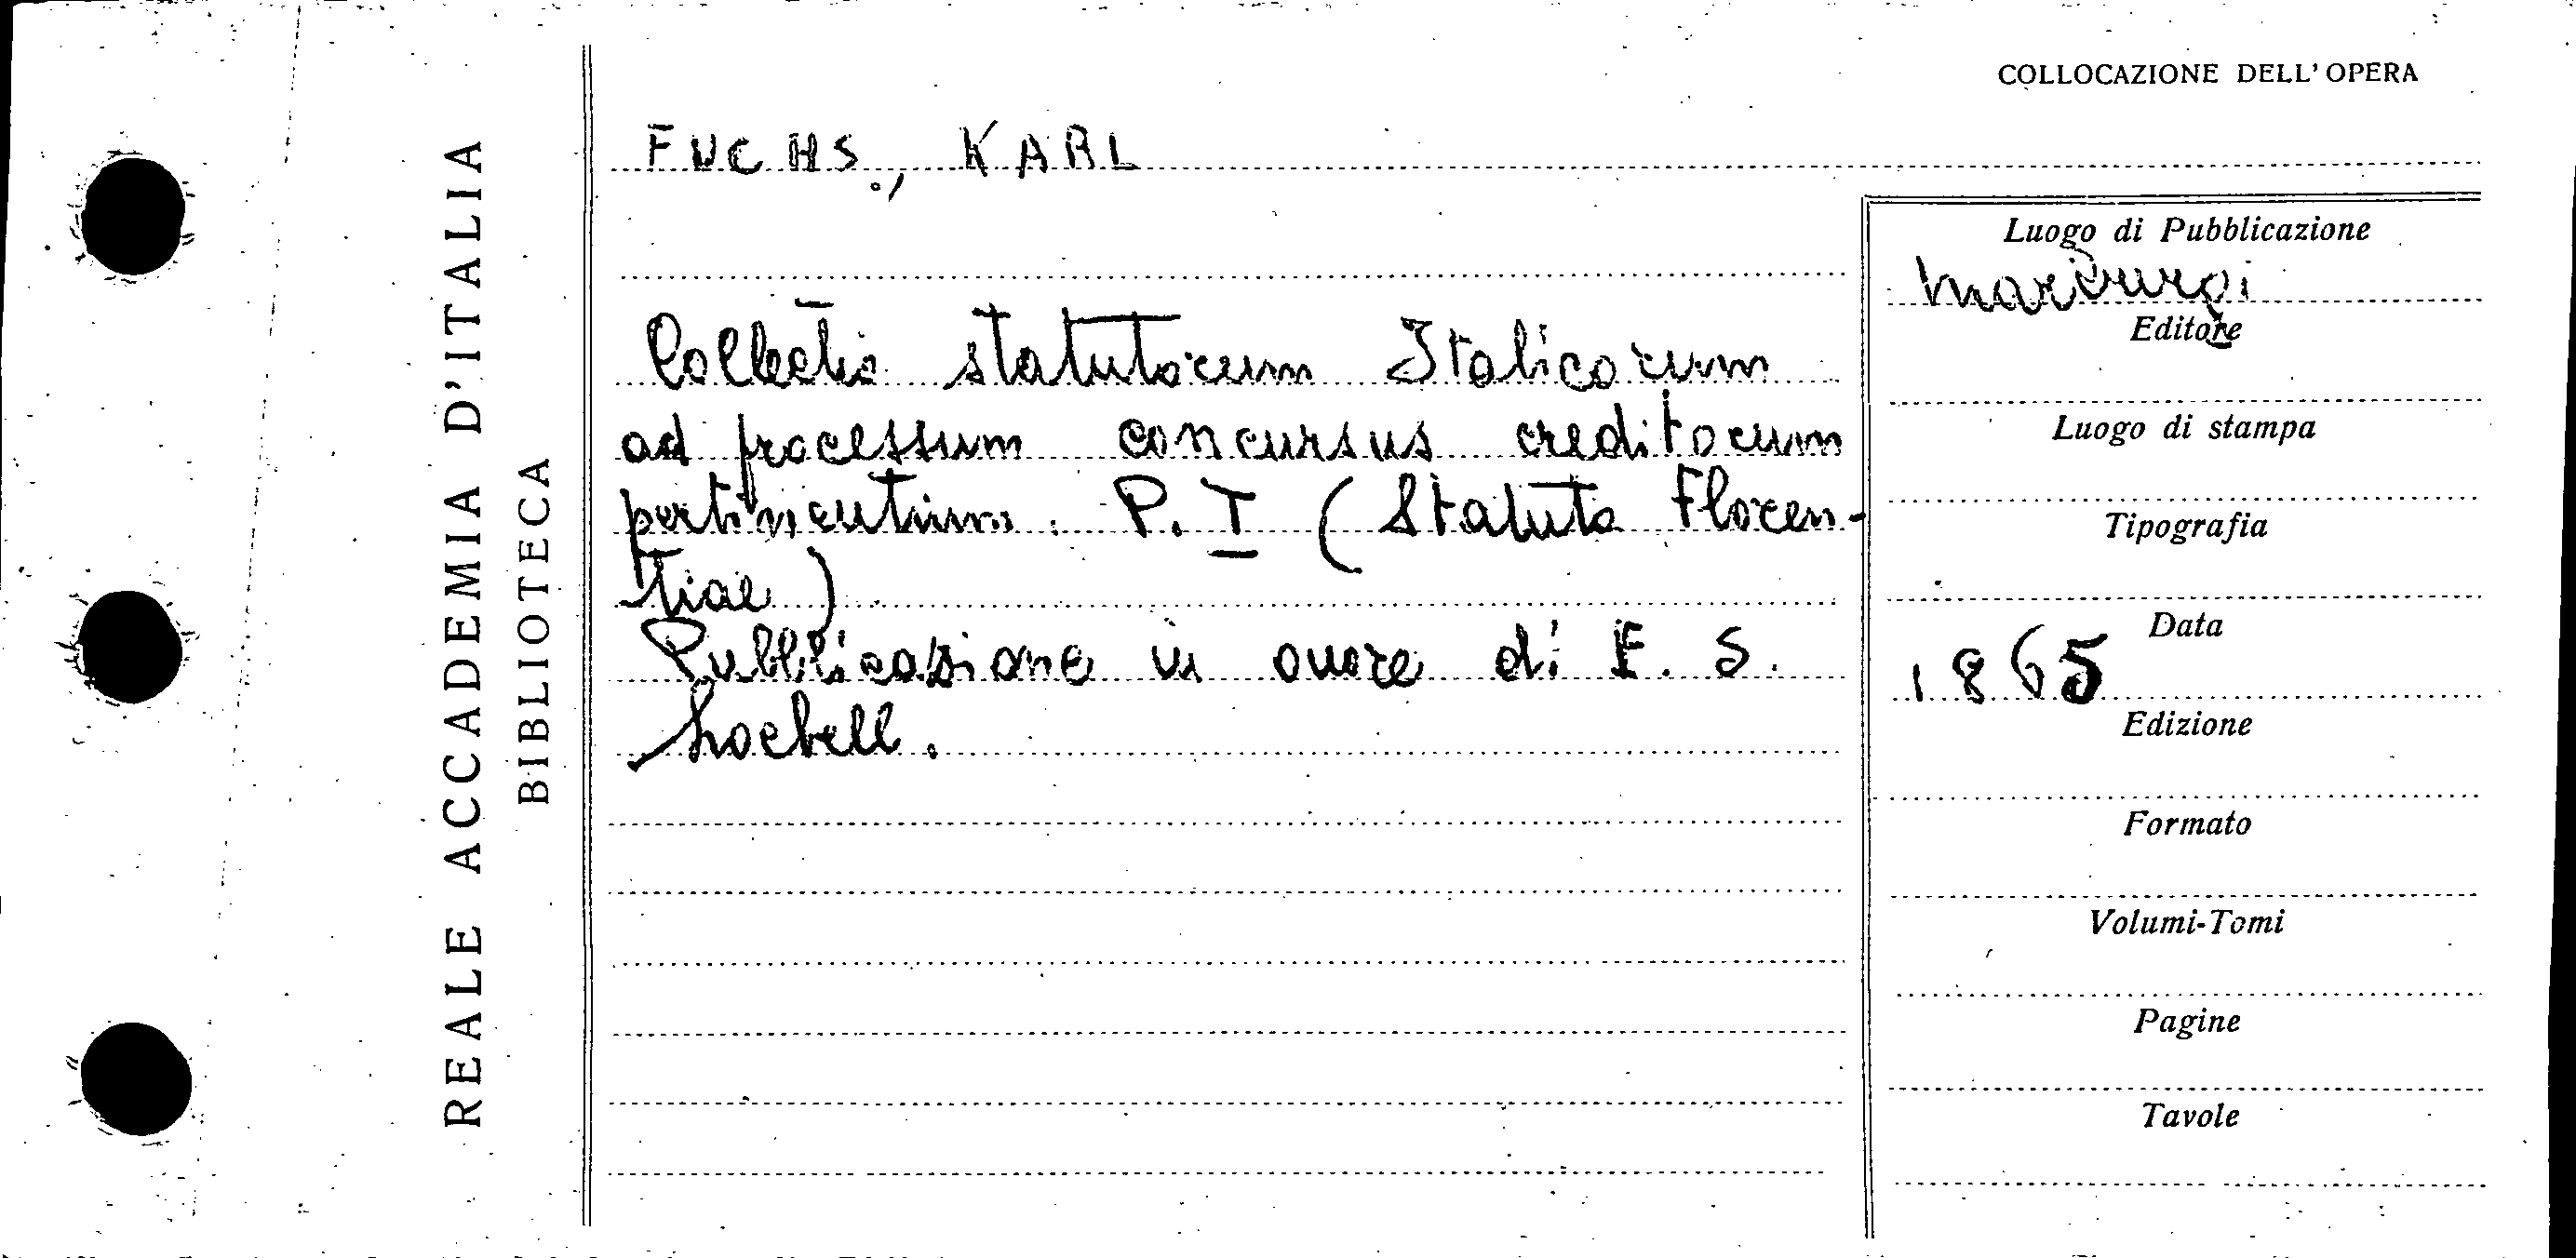 REALE ACCADEMIA D'ITALIA
BIBLIOTECA
COLLOCAZIONE DELL'OPERA
FUCHS., KARL
Collectio statutorum Italicorum
ad processum concursus creditorum
pertinentium. P. I (Statuta Floren-
tiae)
Pubblicazione in onore di E. S.
Loebell.
Luogo di Pubblicazione
Marburgi
Editore
Luogo di stampa
Tipografia
Data
1865
Edizione
Formato
Volumi-Tomi
Pagine
Tavole